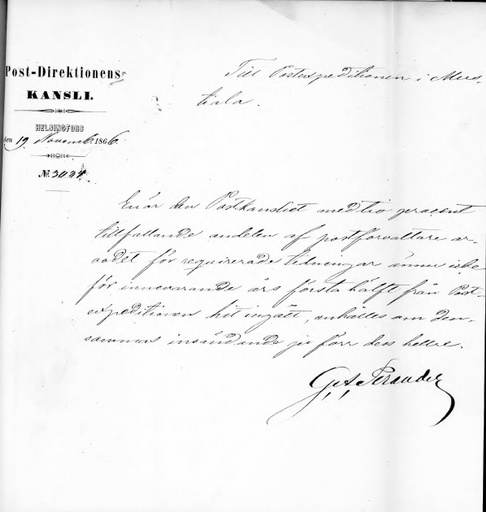 Post-Direktionens
KANSLI.
HELSINGFORS
den 19 November 1866.
№ 3044.
Till Postexpeditionen i Mus-
tiala.
Enär den Postkansliet med tio procent
tillfallande andelen af postförvaltare ar-
vodet för requirerade tidningar ännu icke
för innevarande års första hälft från Post-
expeditionen hit ingått, anhålles om den-
sammas insändande ju förr dess hellre.